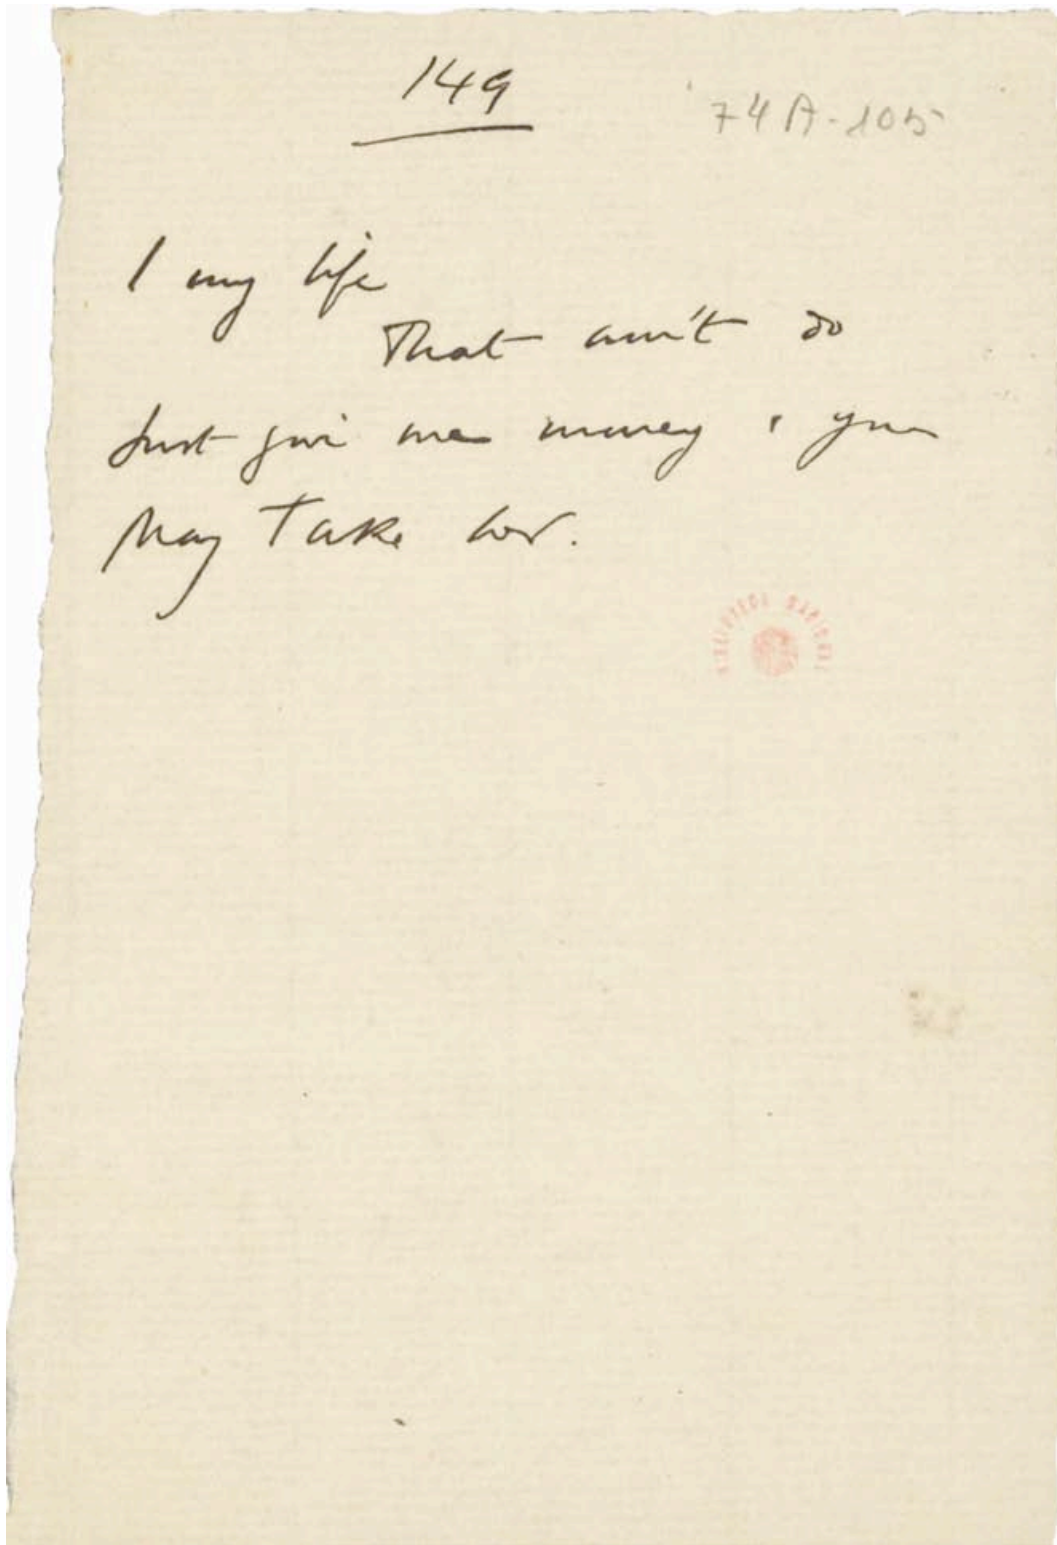 149
74A-105
I my life
That ain't do
Just give me money & you
May Take her.
BIBLIOTECA NACIONAL